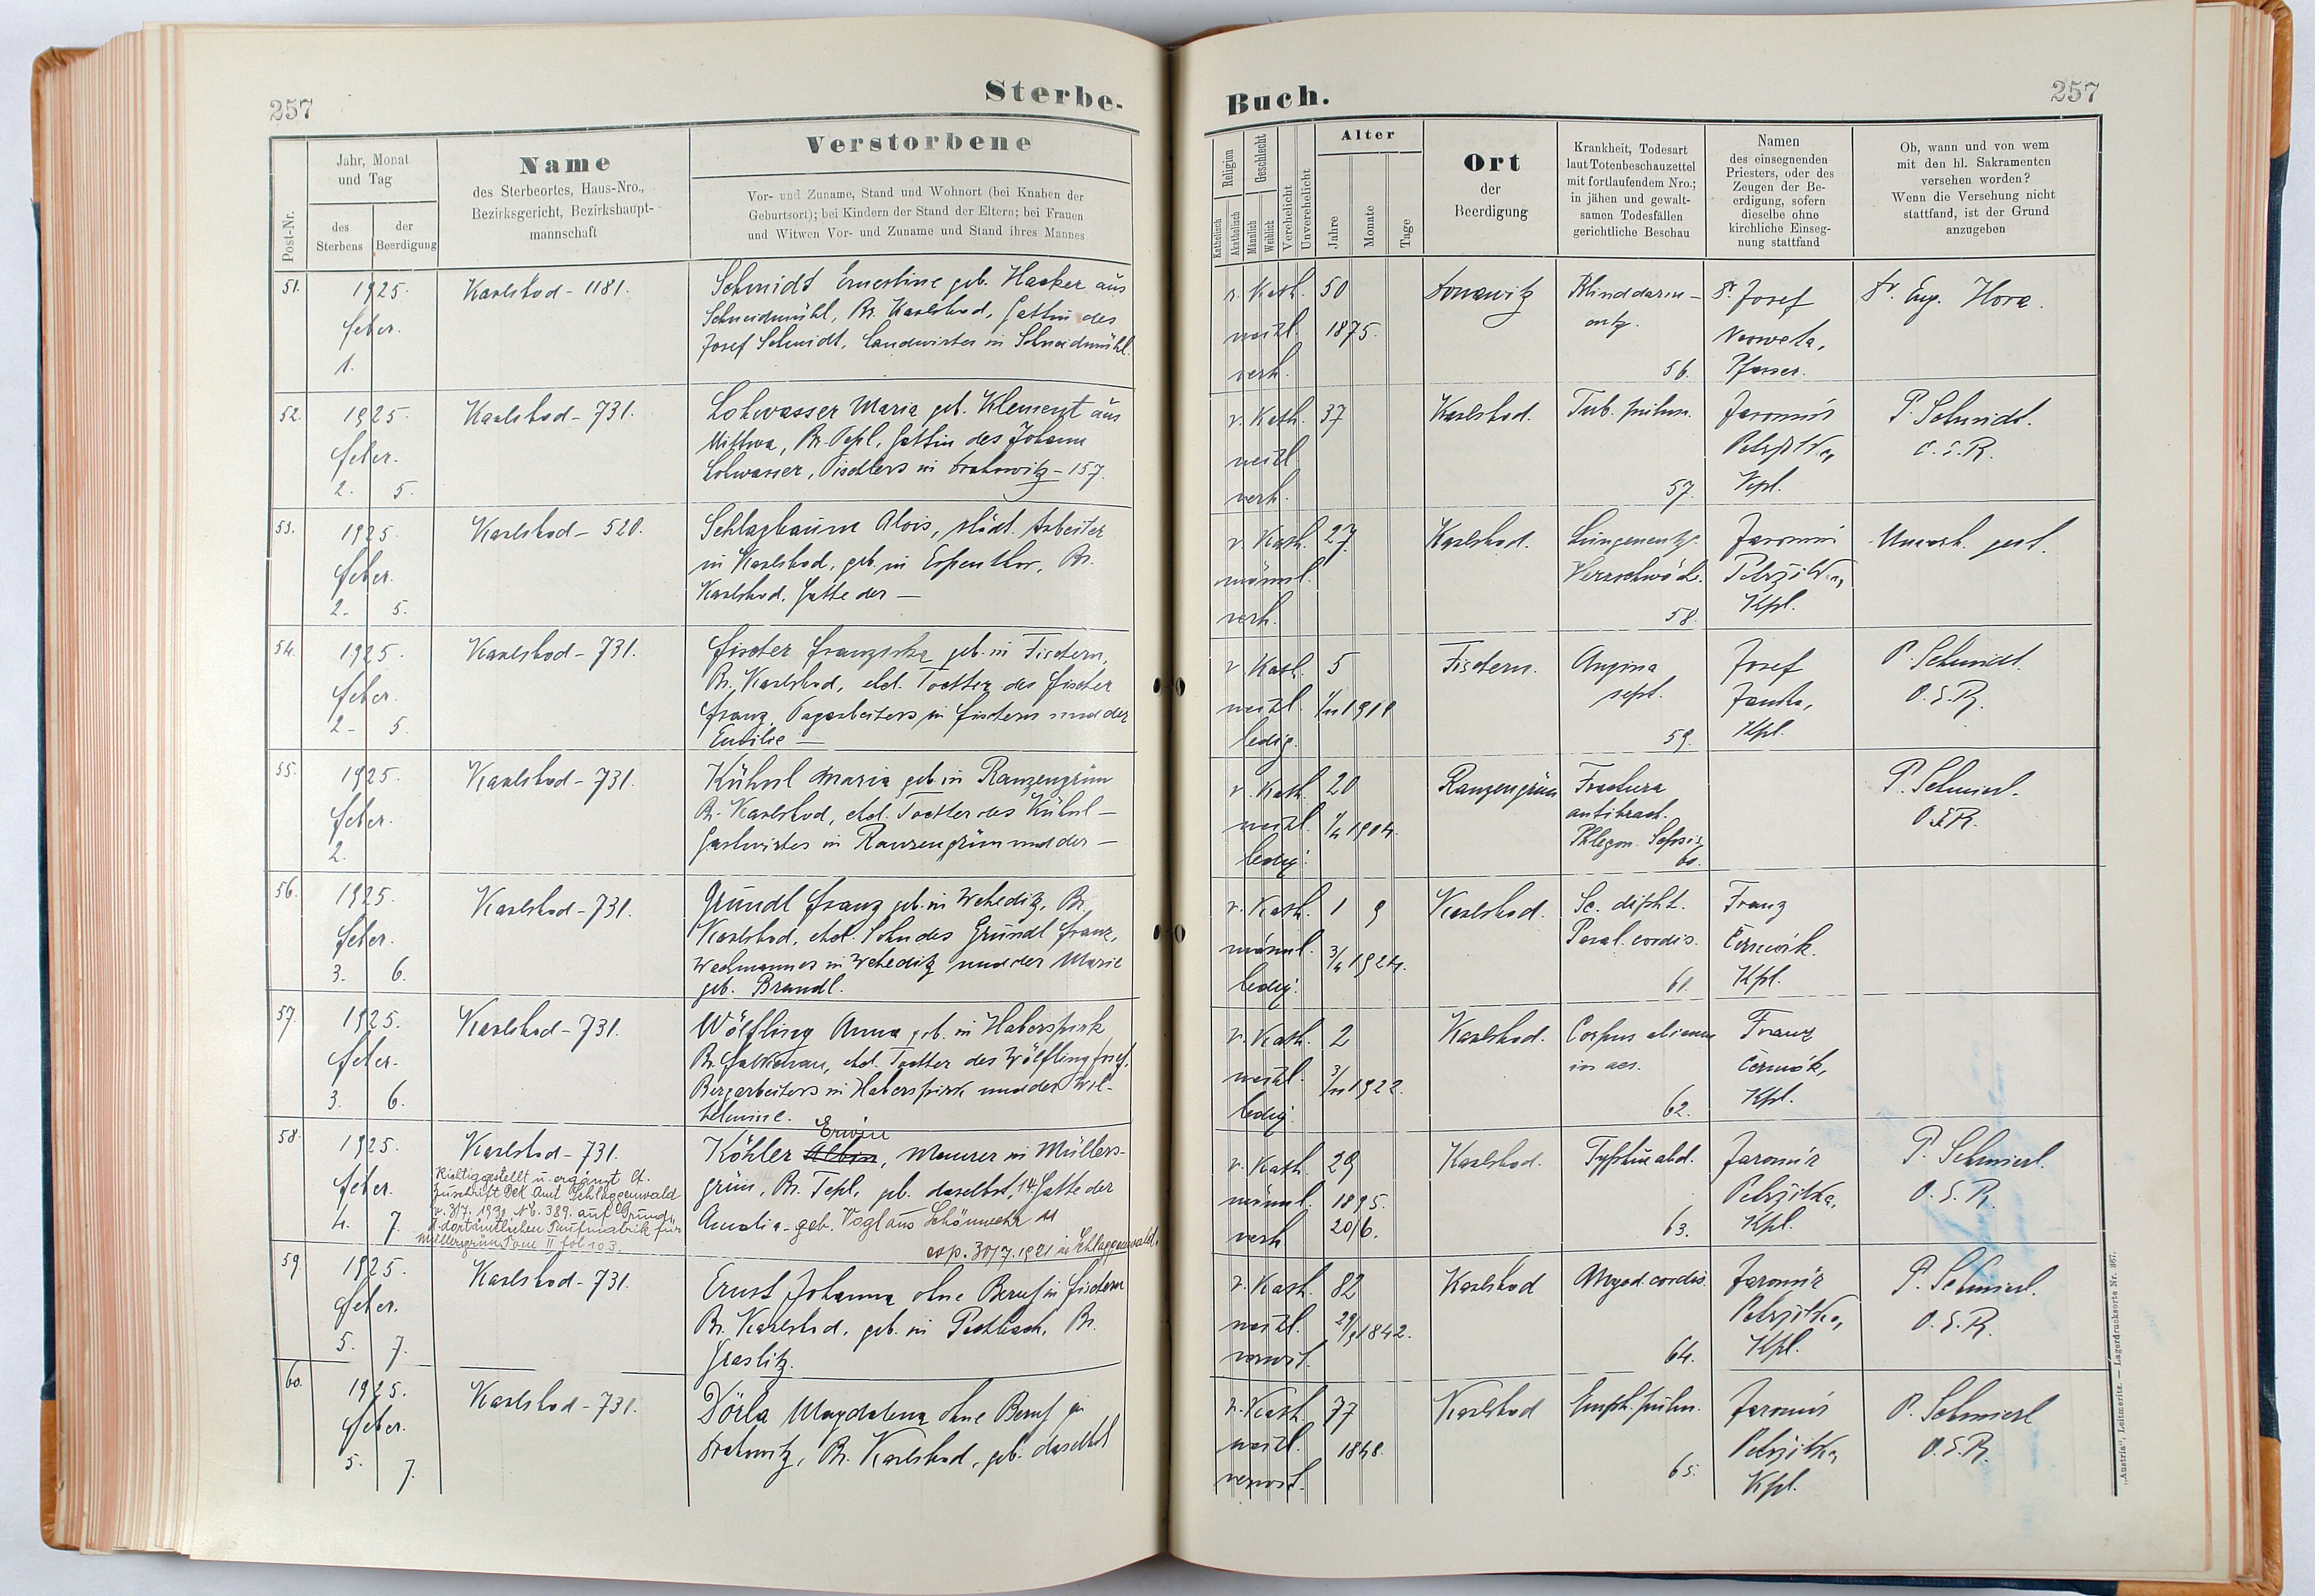 257
Sterbe-
Post-Nr.
Jahr, Monat
und Tag
des
Sterbens
der
Beerdigung
Name
des Sterbeortes, Haus-Nro.,
Bezirksgericht, Bezirkshaupt-
mannschaft
Verstorbene
Vor- und Zuname, Stand und Wohnort (bei Knaben der
Geburtsort); bei Kindern der Stand der Eltern; bei Frauen
und Witwen Vor- und Zuname und Stand ihres Mannes
51.
1925.
feber.
1.
Karlsbad - 1181.
Schmidt Ernestine geb. Hacker aus
Schneidmühl, Bz. Karlsbad, Gattin des
Josef Schmidt, Landwirtes in Schneidmühl.
52.
1925.
feber.
2. 5.
Karlsbad - 731.
Lohwasser Maria geb. Klement aus
Bz. Tepl, Gattin des Johann
Lohwasser, Tischlers in Drahowitz - 157.
53.
1925.
feber.
2. 5.
Karlsbad - 520.
Schlagbaum Alois, städt. Arbeiter
in Karlsbad, geb. in Espenthor, Bz.
Karlsbad, Gatte der —
54.
1925.
feber.
2. 5.
Karlsbad - 731.
Fischer Franziska geb. in Fischern,
Bz. Karlsbad, ehel. Tochter des Fischer
Franz, Tagarbeiters in Fischern und der
Emilie —
55.
1925.
feber.
2.
Karlsbad - 731.
Kühnl Maria geb. in Ranzengrün
Bz. Karlsbad, ehel. Tochter des Kühnl —
Gastwirtes in Ranzengrün und der —
56.
1925.
feber.
3. 6.
Karlsbad - 731.
Gründl Franz geb. in Wehediz, Bz.
Karlsbad, ehel. Sohn des Gründl Franz,
Wachmannes in Wehediz und der Marie
geb. Brandl.
57.
1925.
feber.
3. 6.
Karlsbad - 731.
Wölfling Anna geb. in Haberspirk
Bz. Falkenau, ehel. Tochter des Wölfling Josef,
Bergarbeiters in Haberspirk und der Wil-
helmine.
58.
1925.
feber.
4. 7.
Karlsbad - 731.
Richtiggestellt u. ergänzt lt.
Zuschrift Dek Amt Schlaggenwald
v. 3/7. 193 No. 389. auf Grund
d. dortämtlichen Taufmatrik für
Müllersgrün Tom II fol 103.
Erwin
Köhler Albin, Maurer in Müllers-
grün, Bz. Tepl, geb. daselbst, Gatte der
Amalia geb. Vogl aus Schönwehr
cop. 30/7. 1921 in Schlaggenwald.
59.
1925.
feber.
5. 7.
Karlsbad - 731.
Ernst Johanna ohne Beruf in Fischern
Bz. Karlsbad, geb. in Pechbach, Bz.
Graslitz.
60.
1925.
feber.
5. 7.
Karlsbad - 731.
Dörla Magdalena ohne Beruf in
Drahowitz, Bz. Karlsbad, geb. daselbst
Buch.
257
Religion
Katholisch
Akatholisch
Geschlecht
Männlich
Weiblich
Verehelicht
Unverehelicht
Alter
Jahre
Monate
Tage
Ort
der
Beerdigung
Krankheit, Todesart
laut Totenbeschauzettel
mit fortlaufendem Nro.;
in jähen und gewalt-
samen Todesfällen
gerichtliche Beschau
Namen
des einsegnenden
Priesters, oder des
Zeugen der Be-
erdigung, sofern
dieselbe ohne
kirchliche Einseg-
nung stattfand
Ob, wann und von wem
mit den hl. Sakramenten
versehen worden?
Wenn die Versehung nicht
stattfand, ist der Grund
anzugeben
r. Kath.
weibl.
verh.
50
1875.
Donawitz
Blinddarm-
entz.
56.
P. Josef
Pfarrer.
Fr. Eug. Hora.
r. Kath.
weibl
verh.
37
Karlsbad.
Tub. pulm.
57.
Jaromir
Petrzilka,
Kpl.
P. Schmidt.
O. S. R.
r. Kath.
männl.
verh.
27.
Karlsbad.
Lungenentz.
58.
Jaromir
Petrzilka,
Kpl.
Unversh. gest.
r. Kath.
weibl.
ledig.
5
Fischern.
Angina
sept.
59.
Josef
Janka,
Kpl.
P. Schmidt.
O. S. R.
r. Kath.
weibl.
ledig.
20
1904.
Ranzengrün
Fractura
antibrach.
Phlegon. Sepsis.
60.
P. Schmidl.
O. S. R.
r. Kath.
männl.
ledig.
1 9
3/4 1924.
Karlsbad.
Sc. dipht.
Paral. cordis.
61.
Franz
Černoik.
Kpl.
r. Kath.
weibl.
ledig.
2
1922.
Karlsbad.
Corpus alienum
in aes.
62.
Franz
Kpl.
r. Kath.
männl.
verh
29
1895.
20/6.
Karlsbad.
Typhus abd.
63.
Jaromir
Petrzilka,
Kpl.
P. Schmidl.
O. S. R.
r. Kath.
weibl.
verwit.
82
29/9 1842.
Karlsbad
Myod. cordis.
64.
Jaromir
Petrzilka,
Kpl.
P. Schmidl.
O. S. R.
r. Kath.
weibl.
verwit.
77
1848.
Karlsbad
Emph. pulm.
65.
Jaromir
Petrzilka
Kpl.
P. Schmidl
O. S. R.
„Austria", Leitmeritz. — Lagerdrucksorte Nr. 367.